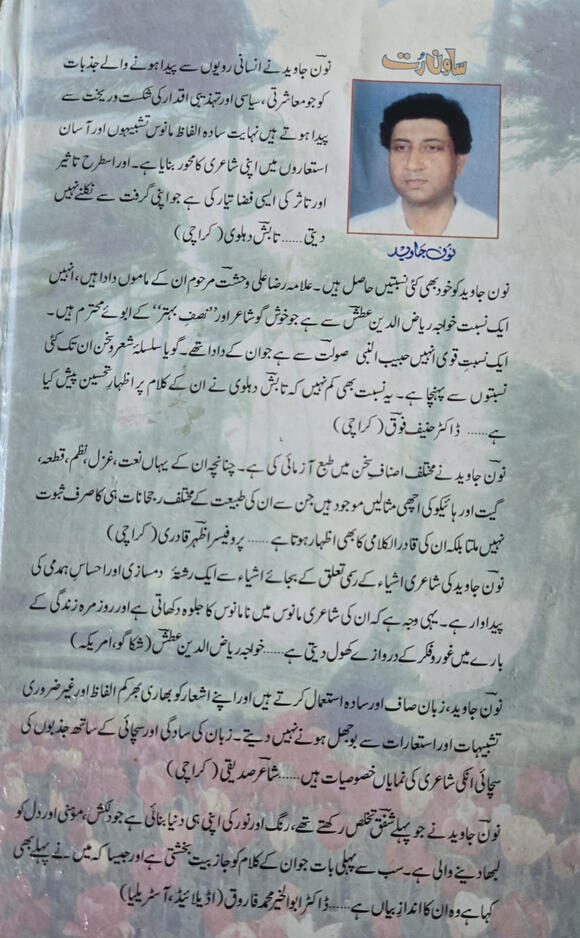 ساون رُت
نونؔ جاوید نے انسانی رویوں سے پیدا ہونے والے جذبات
کو جو معاشرتی، سیاسی اور تہذیبی اقدار کی شکست وریخت سے
پیدا ہوتے ہیں نہایت سادہ الفاظ مانوس تشبیہوں اور آسان
استعاروں میں اپنی شاعری کا محور بنایا ہے۔ اور اسطرح تاثیر
اور تاثر کی ایسی فضا تیار کی ہے جو اپنی گرفت سے نکلنے نہیں
دیتی ...... تابشؔ دہلوی (کراچی)
نون جاوید
نون جاوید کو خود بھی کئی نسبتیں حاصل ہیں۔ علامہ رضا علی وحشتؔ مرحوم ان کے ماموں دادا ہیں، انہیں
ایک نسبت خواجہ ریاض الدین عطشؔ سے ہے جو خوش گو شاعر اور ”نصف بہتر“ کے ابوئے محترم ہیں۔
ایک نسبتِ قوی انہیں حبیب النبی صولتؔ سے ہے جو ان کے دادا تھے۔ گویا سلسلۂ شعر و سخن ان تک کئی
نسبتوں سے پہنچا ہے۔ یہ نسبت بھی کم نہیں کہ تابشؔ دہلوی نے ان کے کلام پر اظہارِ تحسین پیش کیا
ہے...... ڈاکٹر حنیف فوقؔ (کراچی)
نونؔ جاوید نے مختلف اصنافِ سخن میں طبع آزمائی کی ہے۔ چنانچہ ان کے یہاں نعت، غزل، نظم، قطعہ،
گیت اور ہائیکو کی اچھی مثالیں موجود ہیں جن سے ان کی طبیعت کے مختلف رجحانات ہی کا صرف ثبوت
نہیں ملتا بلکہ ان کی قادر الکلامی کا بھی اظہار ہوتا ہے...... پروفیسر اظہر قادری (کراچی)
نونؔ جاوید کی شاعری اشیاء کے رسمی تعلق کے بجائے اشیاء سے ایک رشتۂ دمسازی اور احساسِ ہمدمی کی
پیداوار ہے۔ یہی وجہ ہے کہ ان کی شاعری مانوس میں نامانوس کا جلوہ دکھاتی ہے اور روزمرہ زندگی کے
بارے میں غور و فکر کے دروازے کھول دیتی ہے......خواجہ ریاض الدین عطشؔ (شکاگو، امریکہ)
نونؔ جاوید، زبان صاف اور سادہ استعمال کرتے ہیں اور اپنے اشعار کو بھاری بھرکم الفاظ اور غیر ضروری
تشبیہات اور استعارات سے بوجھل ہونے نہیں دیتے۔ زبان کی سادگی اور سچائی کے ساتھ جذبوں کی
سچائی انکی شاعری کی نمایاں خصوصیات ہیں......شاعرؔ صدیقی (کراچی)
نونؔ جاوید نے جو پہلے شفقؔ تخلص رکھتے تھے، رنگ اور نور کی اپنی ہی دنیا بنائی ہے جو دلکش، موہنی اور دل کو
لبھا دینے والی ہے۔ سب سے پہلی بات جو ان کے کلام کو جاذبیت بخشتی ہے اور جیسا کہ میں نے پہلے بھی
کہا ہے وہ ان کا اندازِ بیاں ہے......ڈاکٹر ابو الخیر محمد فاروق (اڈیلائیڈ، آسٹریلیا)